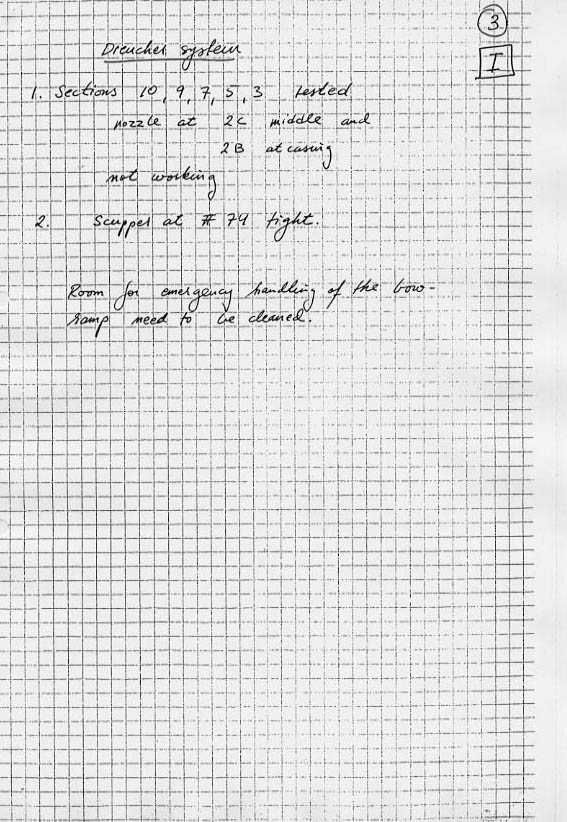 3
I
Drencher system
1. Sections 10, 9, 7, 5, 3 tested
nozzle at 2C middle and
2B at casing
not working
2. Scupper at # 74 tight.
Room for emergency handling of the bow-
ramp need to be cleaned.